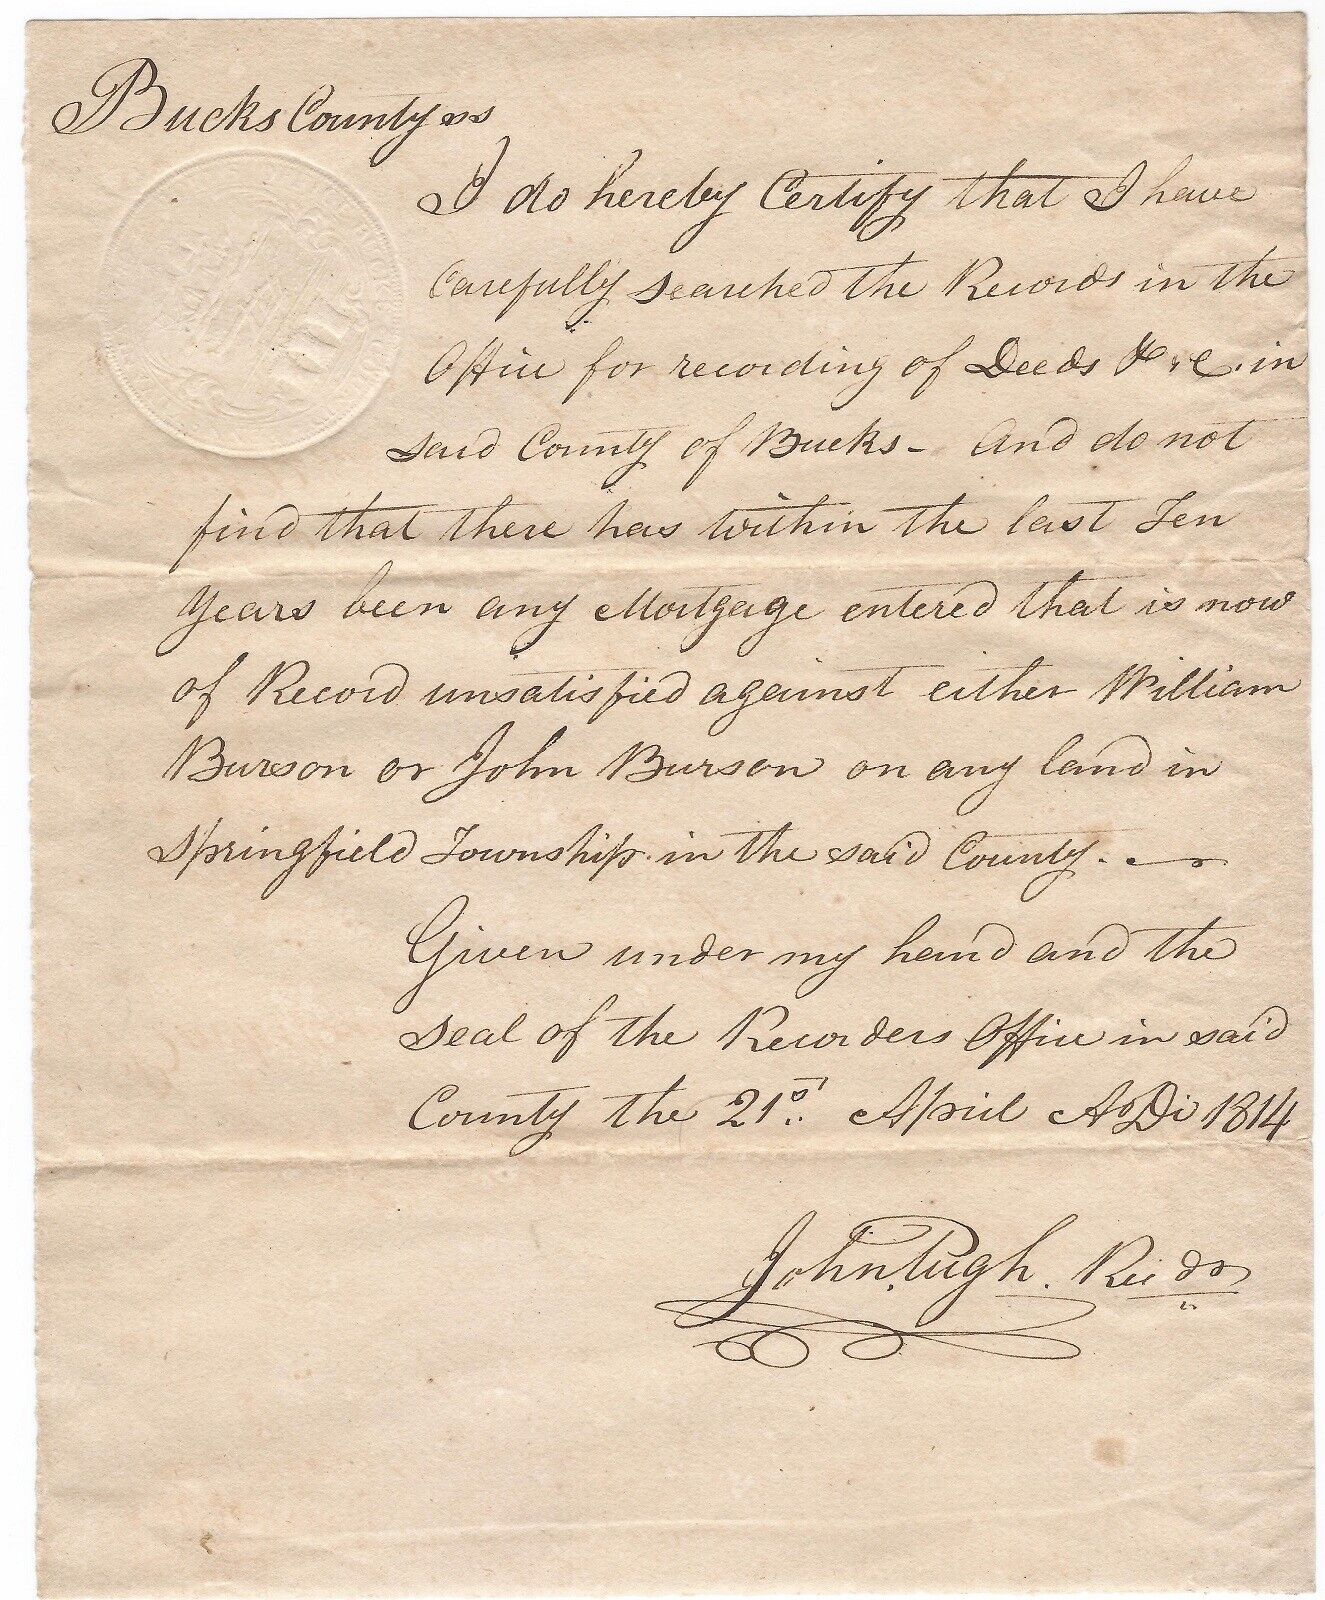 Bucks County ss
I do hereby Certify that I have
Carefully searched the Records in the
Office for recording of Deeds &c. in
said County of Bucks - And do not
find that there has within the last Ten
years been any Mortgage entered that is now
of Record unsatisfied against either William
Burson or John Burson on any land in
Springfield Township in the said County. -
Given under my hand and the
seal of the Recorders Office in said
County the 21st April AoDi 1814
John Pugh. Recdr